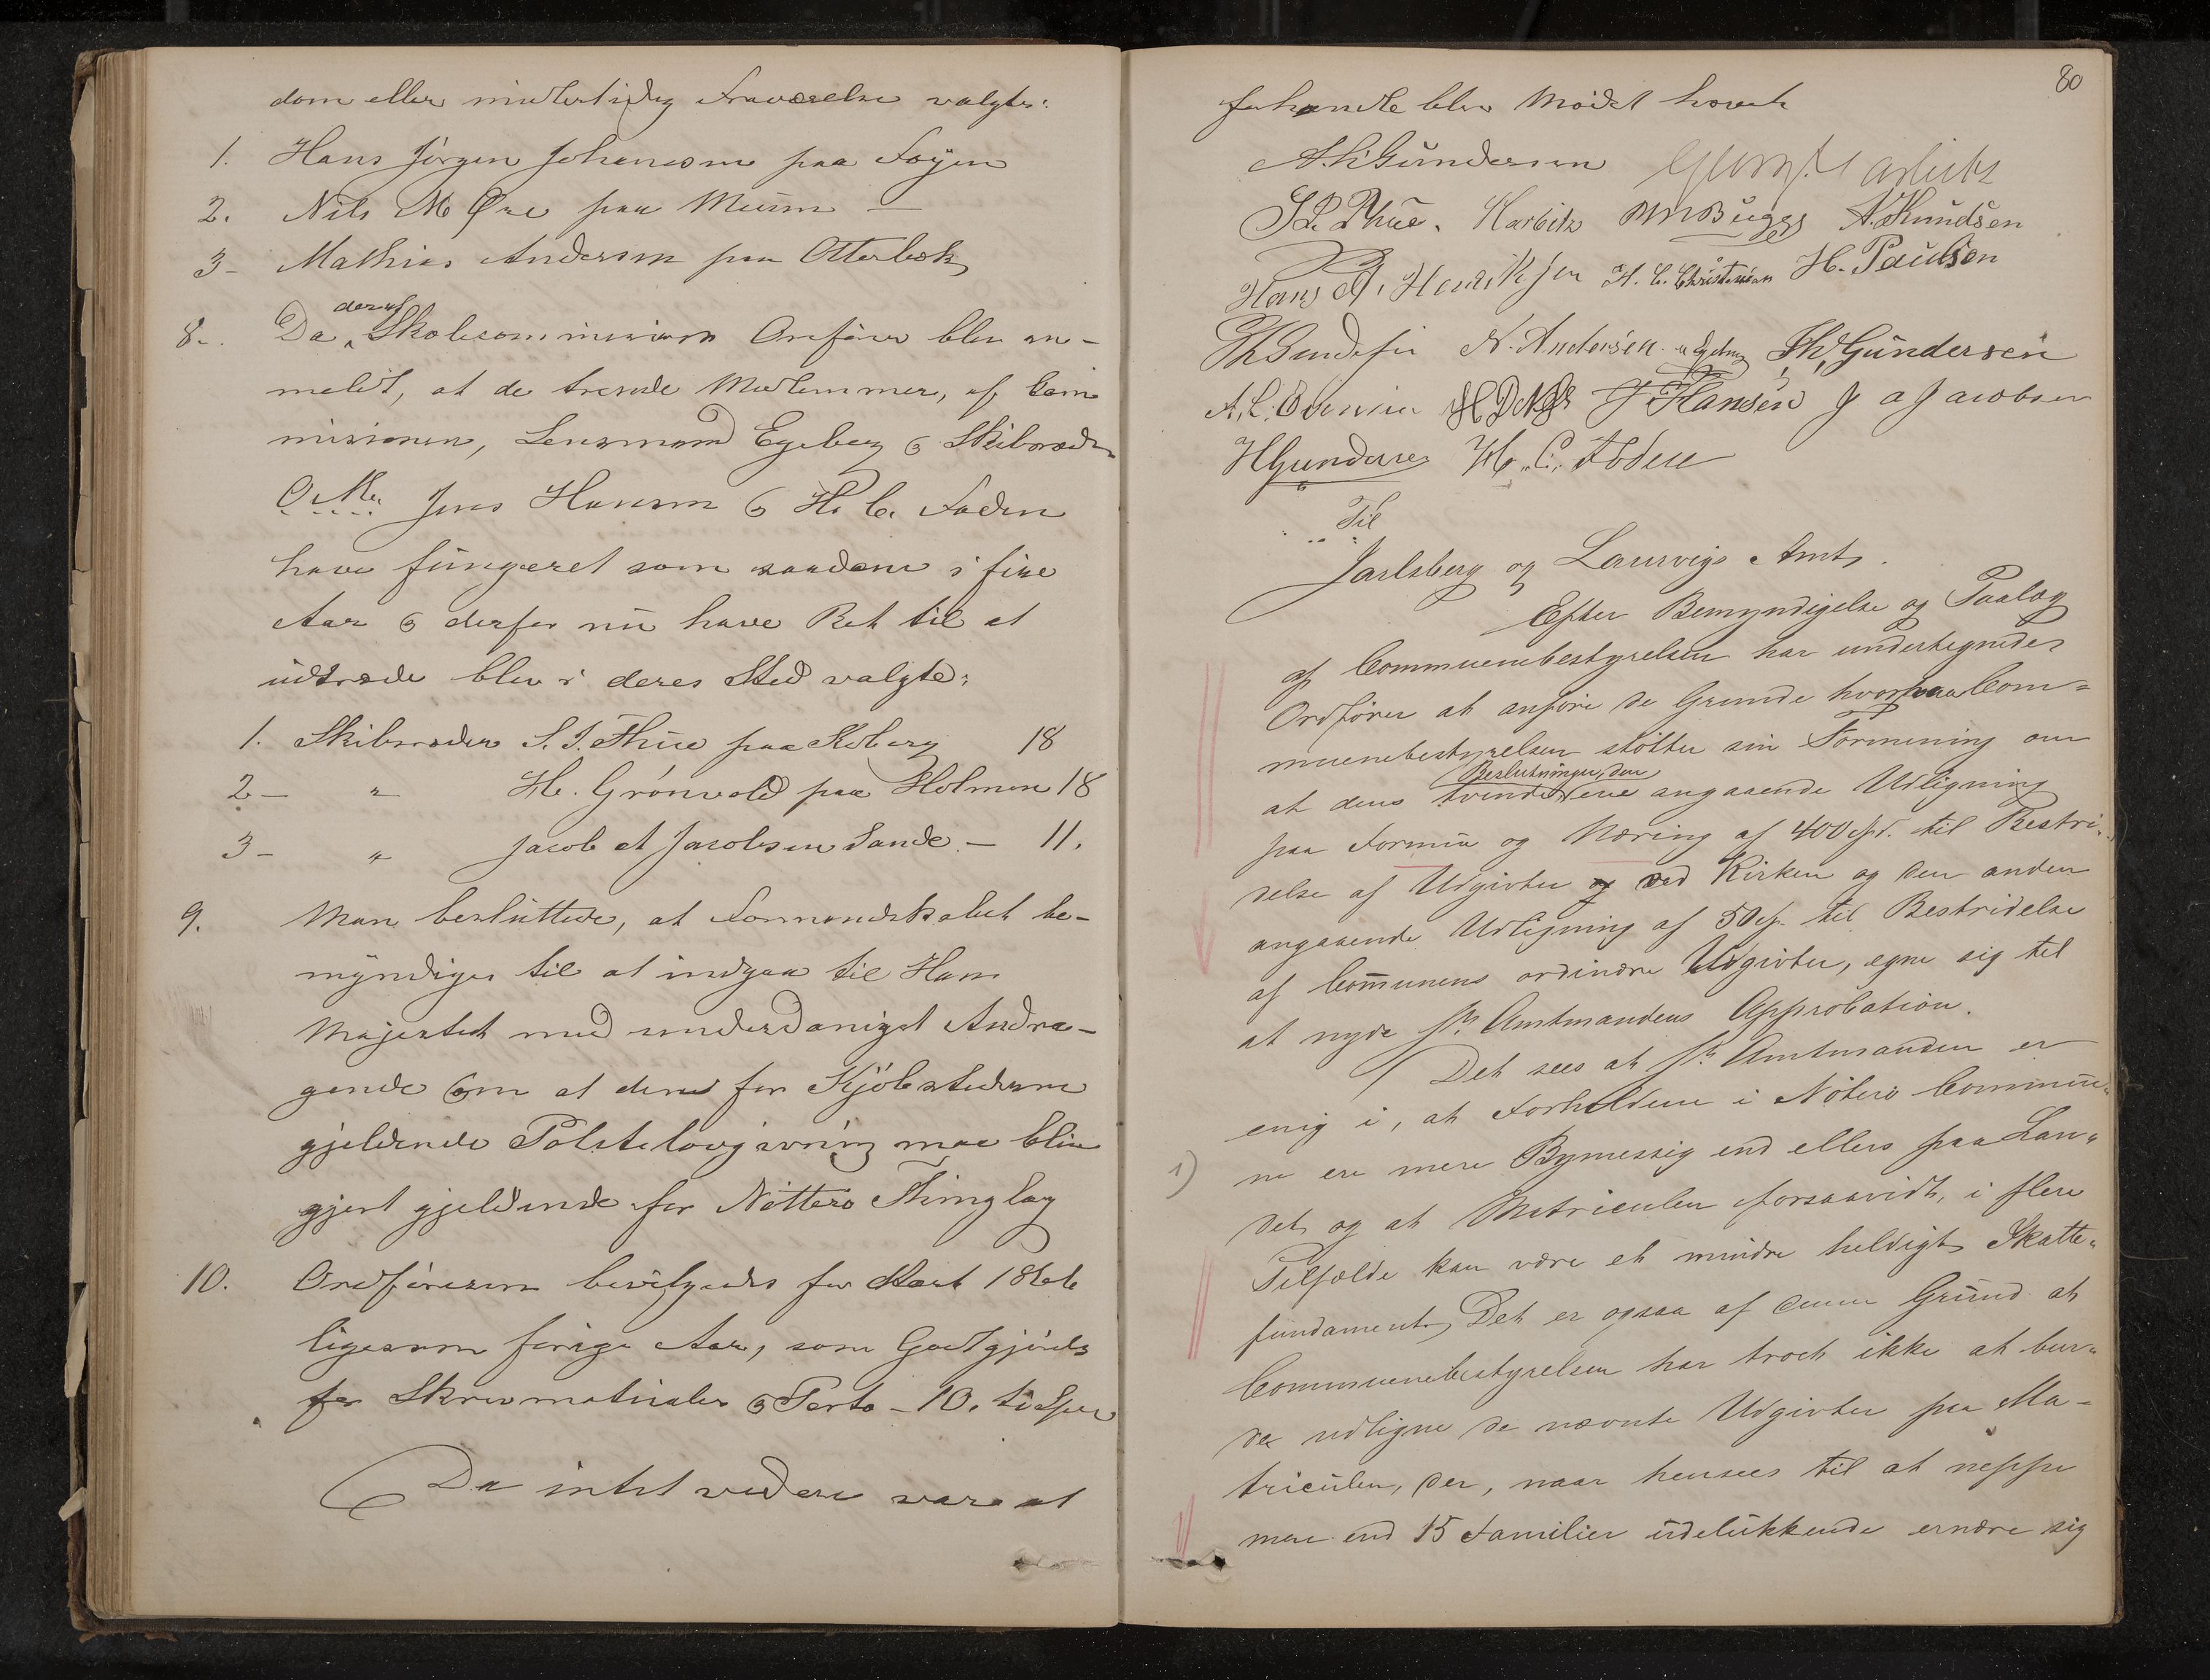 dom eller midlertidig Fraværelse valgtes:
1. Hans Jörgen Johannesen paa Föyen
2. Nils M Öre paa Meum —
3 - Mathias Andersen paa Otterbæk
8. Da deraf Skolecommisionens Ordförer blev an-
meldt, at de trende Medlemmer, af Com
misionen, Lensmand Egeberg & Skibsreder
O. M. Jens Hansen & H. C. Foden
have fungeret som saadane i fire
Aar & derfor nu have Ret til at
udtræde blev i deres Sted valgte:
1. Skibsreder S. I. Thue paa Roberg 18
2 - " H. Grönvold paa Holmen 18
3 - " Jacob A Jacobsen Sande - 11.
9. Man besluttede, at Formandskabet be-
myndiges til at indgaa til Hans
Majestæt med underdanigst Andra-
gende om at den for Kjöbstæderne
gjeldende Politilovgivning maa blive
gjort gjeldende for Nötterö Thinglag
10. Ordföreren bevilgedes for Aaret 1866
ligesom forige Aar, som Godtgjörelse
for Skrivmatrialier & Porto - 10. ti Spd
Da intet videre var at
80
forhandle blev Mödet hævet
A. K. Gundersen Harbitz
S. I. Thue. Harbitz Bugge A. Knudsen
Hans A. Henriksen H. C. Christensen H. Paulsen
N. Andersen Gundersen
Hansen J A Jacobsen
HGundersen H. C. Foden
Til
Jarlsberg og Laurvigs Amt.
Efter Bemyndigelse og Paalæg
af Communebestyrelsen har undertegnede
Ordförer at anföre de Grunde hvorpaa Com=
munebestyrelsen stötter sin Formening om
Beslutninger, den
at dens tvende ene angaaende Udligning
paa Formue og Næring af 400 Spd. til Bestri-
delse af Udgivter og ved Kirken og den anden
angaaende Udligning af 50 Sp. til Bestridelse
af Communens ordinære Udgivter, egne sig til
at nyde Hr. Amtmandens Approbation.
Det sees at Hr. Amtmanden er
enig i, at Forholdene i Nöterö Commu-
1) ne ere mere Bymessig end ellers paa Lan-
det og at Matriculen forsaavidt, i flere
Tilfælde kan være et mindre heldigt Skatte-
fundament. Det er ogsaa af denne Grund at
Communebestyrelsen har troet ikke at bur-
de udligne de nævnte Udgivter paa Ma-
triculen, der, naar hensees til at neppe
mere end 15 Familier udelukkende ernære sig